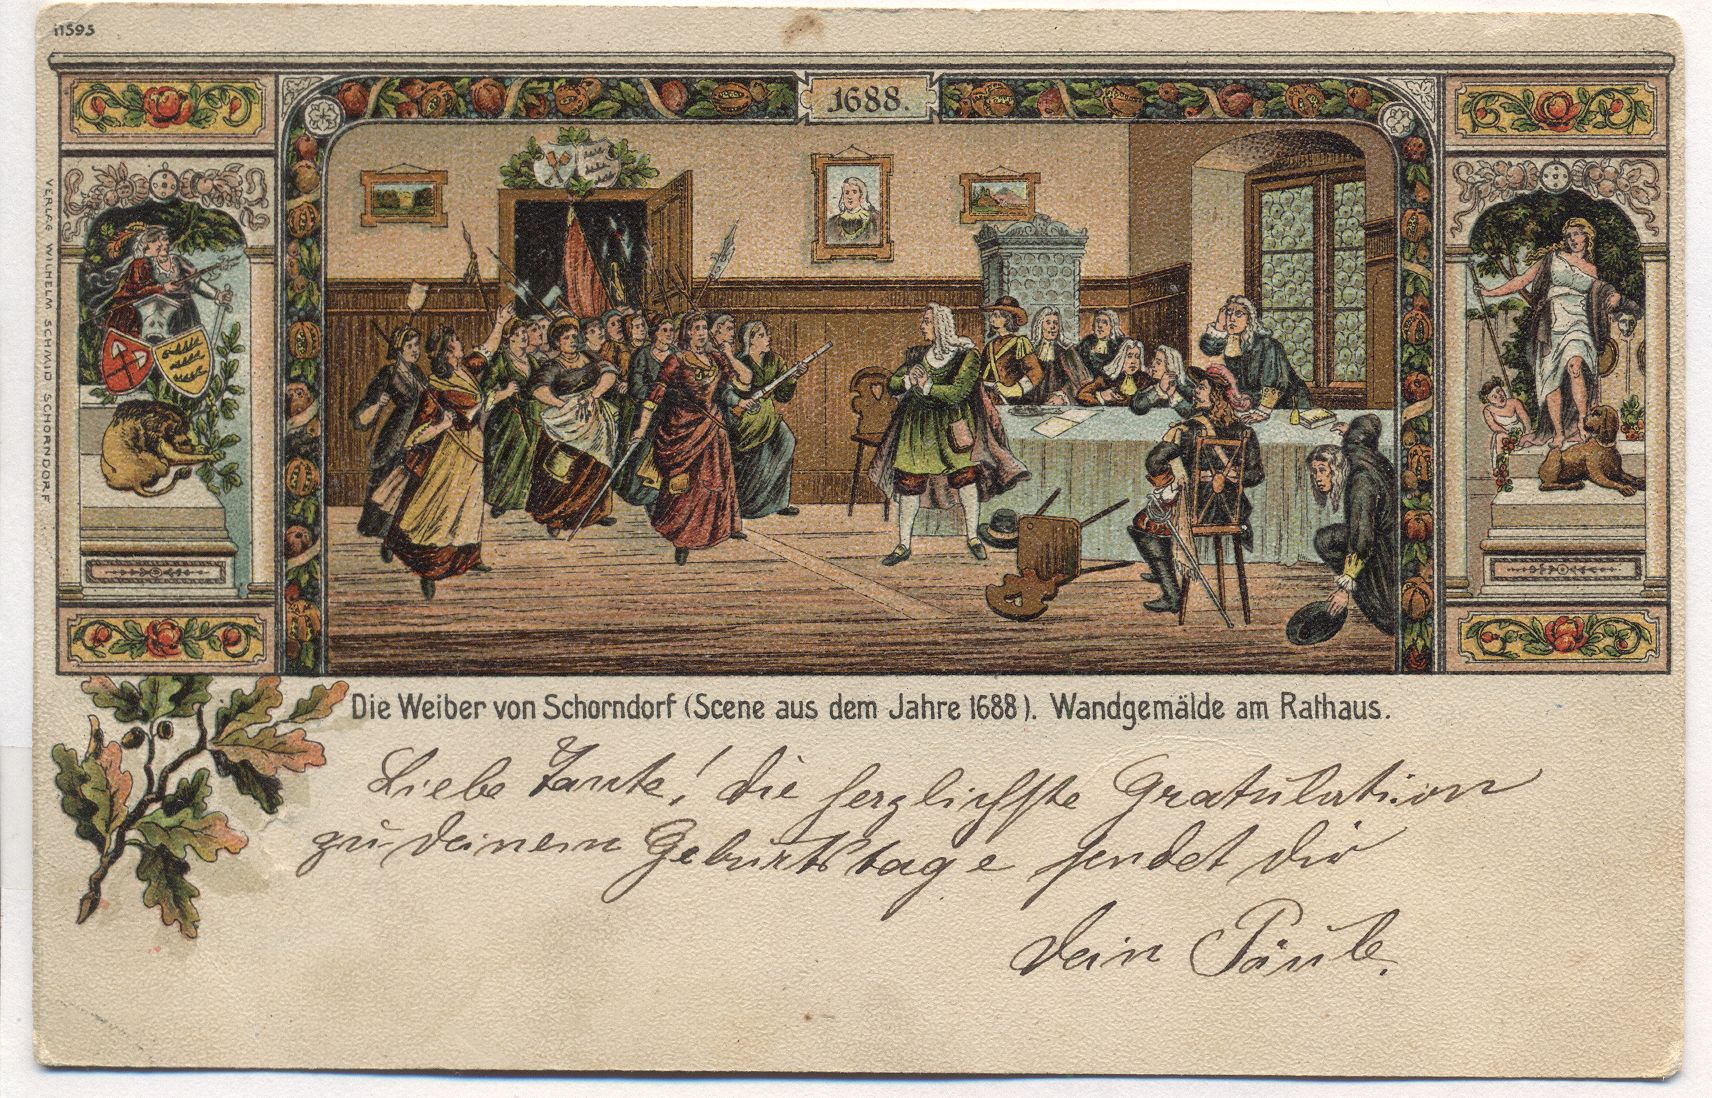 11595
1688.
VERLAG WILHELM SCHMID SCHORNDORF
Die Weiber von Schorndorf (Scene aus dem Jahre 1688). Wandgemälde am Rathaus.
Liebe Tante! die herzlichste Gratulation
zu deinem Geburtstage sendet dir
dein Päule.